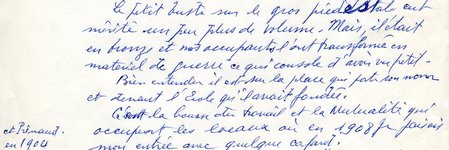 Le petit buste sur le gros piédestale eut
mérité un peu plus de volume. Mais, il était
en bronze et nos occupants l'ont transformé en
materiel de guerre ce qui console d'avoir vu petit.
Bien entendu il est sur la place qui porte son nom
et devant l'Ecole qu'il avait fondée.
C'est la bourse du travail et la Mutualité qui
occupent les locaux où en 1908 je faisais
mon entrée avec quelque cafard.
et Prénaud
en 1904